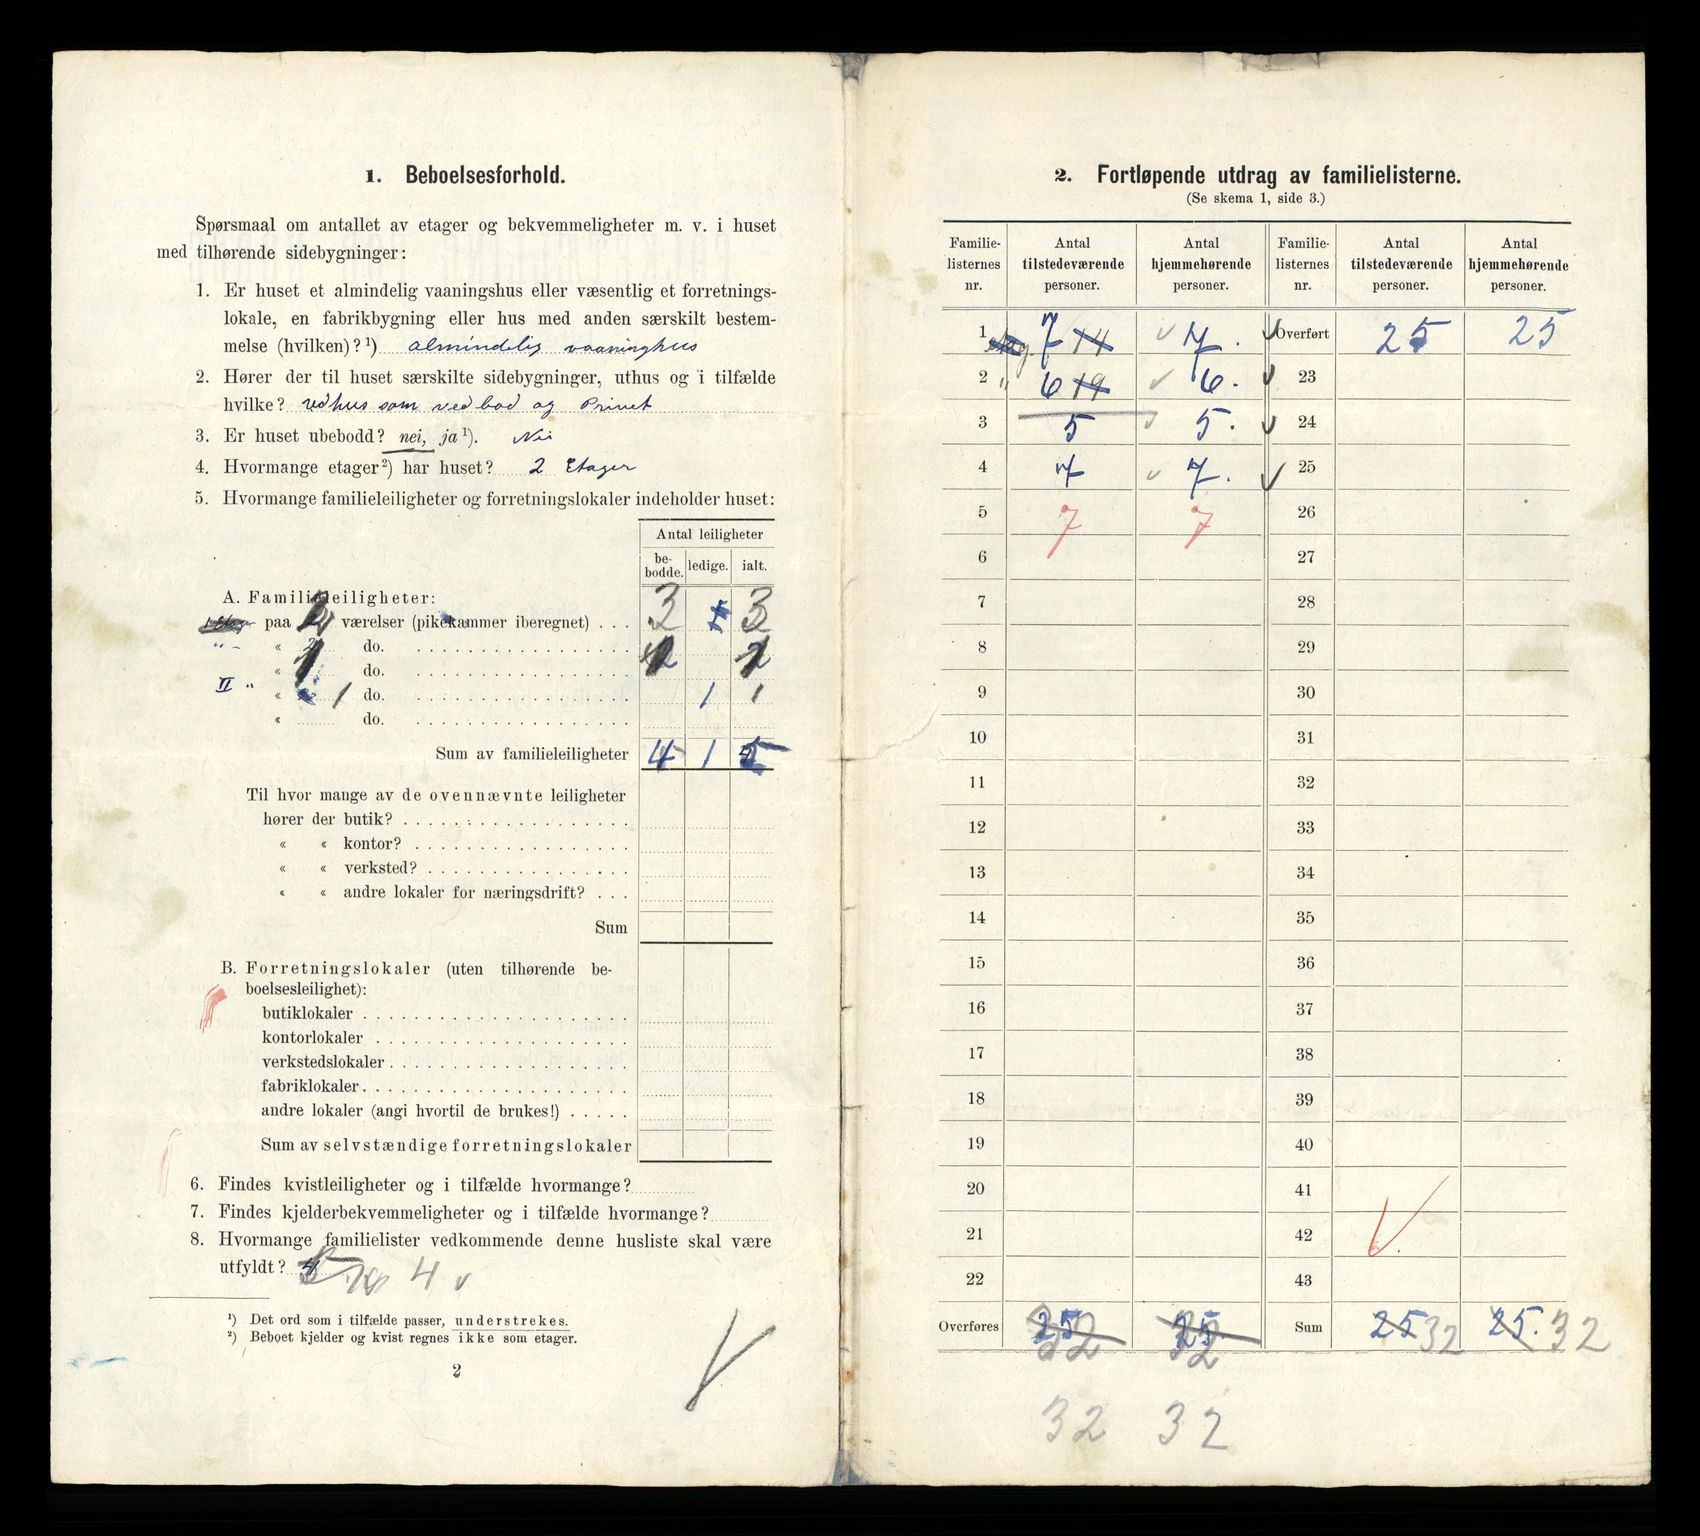 1. Beboelsesforhold.
Spørsmaal om antallet av etager og bekvemmeligheter m. v. i huset
med tilhørende sidebygninger:
1. Er huset et almindelig vaaningshus eller væsentlig et forretnings-
lokale, en fabrikbygning eller hus med anden særskilt bestem-
melse (hvilken)?¹) almindelig vaaninghus
2. Hører der til huset særskilte sidebygninger, uthus og i tilfælde
hvilke? vedhus som vedbod og Privet
3. Er huset ubebodd? nei, ja¹). Nei
4. Hvormange etager²) har huset? 2 Etager
5. Hvormange familieleiligheter og forretningslokaler indeholder huset:
Antal leiligheter
be-
bodde. ledige. ialt.
A. Familieleiligheter:
paa 2 værelser (pikekammer iberegnet) . . . 3 3
« do.
« do.
II " « 1 do. 1 1
« do.
Sum av familieleiligheter 4 1 5
Til hvor mange av de ovennævnte leiligheter
hører der butik?
« « kontor?
« « verksted?
« « andre lokaler for næringsdrift?
Sum
B. Forretningslokaler (uten tilhørende be-
boelsesleilighet):
butiklokaler
kontorlokaler
verkstedslokaler
fabriklokaler
andre lokaler (angi hvortil de brukes!)
Sum av selvstændige forretningslokaler
6. Findes kvistleiligheter og i tilfælde hvormange?
7. Findes kjelderbekvemmeligheter og i tilfælde hvormange?
8. Hvormange familielister vedkommende denne husliste skal være
utfyldt? 4
¹) Det ord som i tilfælde passer, understrekes.
²) Beboet kjelder og kvist regnes ikke som etager.
2
2. Fortløpende utdrag av familielisterne.
(Se skema 1, side 3.)
Familie-
listernes
nr.
Antal
tilstedeværende
personer.
Antal
hjemmehørende
personer.
Familie-
listernes
nr.
Antal
tilstedeværende
personer.
Antal
hjemmehørende
personer.
1 7 14 7. Overført 25 25
2 " 6 19 6. 23
3 5 5. 24
4 7 7. 25
5 7 7 26
6 27
7 28
8 29
9 30
10 31
11 32
12 33
13 34
14 35
15 36
16 37
17 38
18 39
19 40
20 41
21 42
22 43
Overføres 25 32 25 32 Sum 25 32 25. 32
32 32